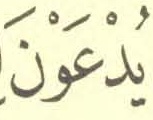 يُدْعَوْنَ